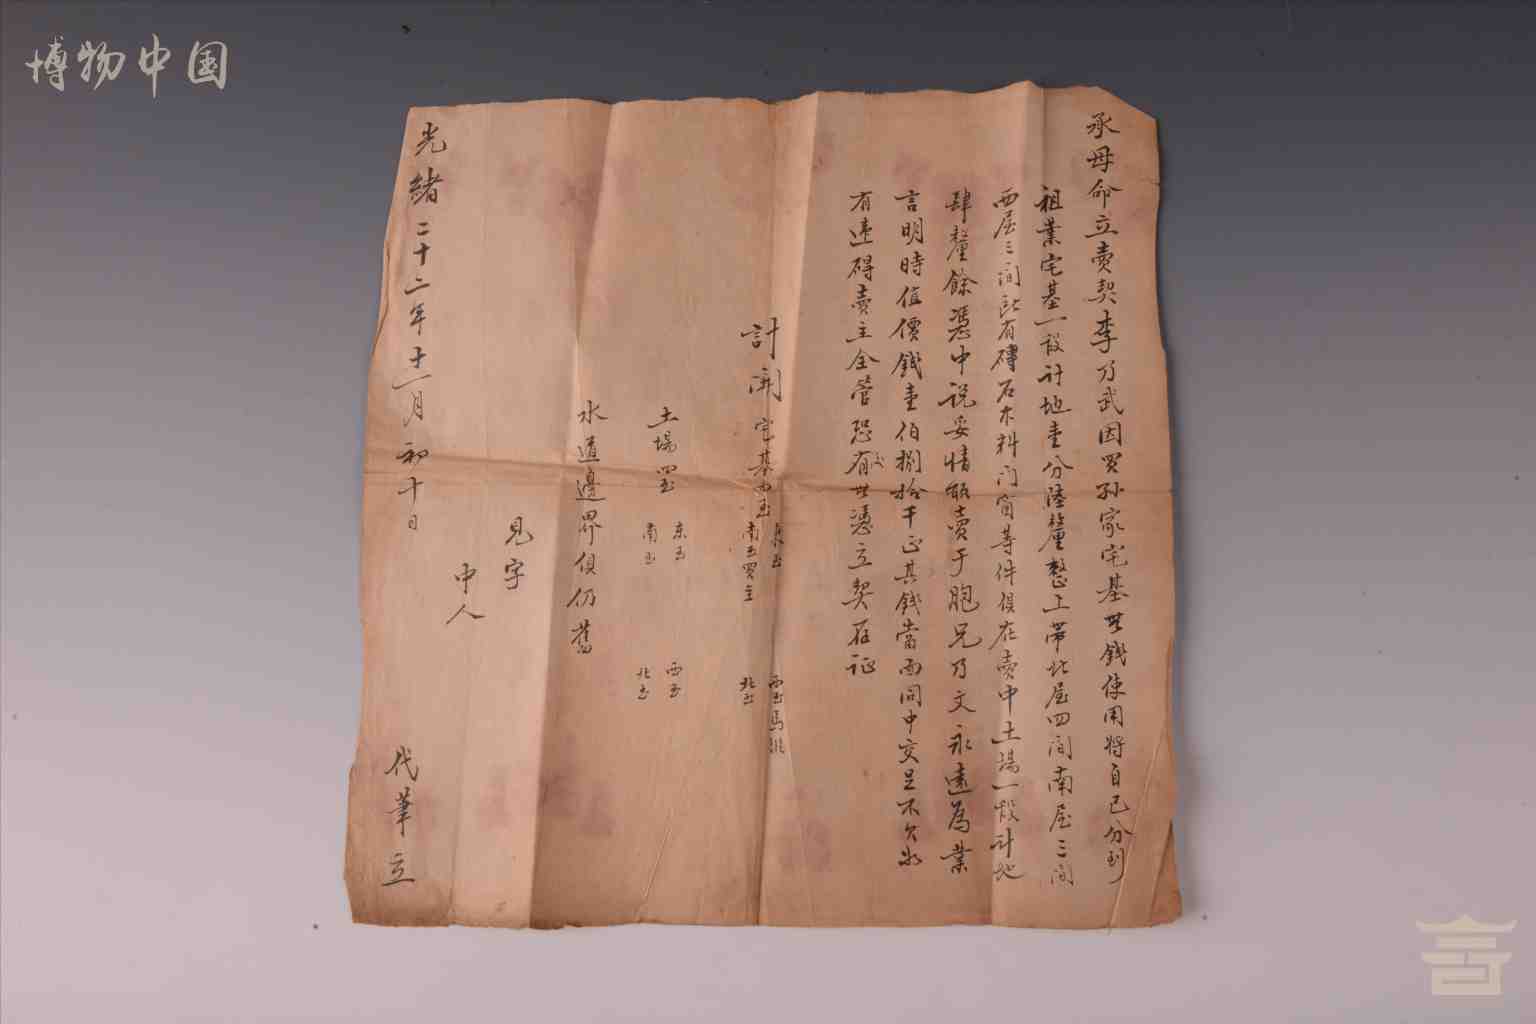 博物中国
承母命立賣契李乃武因買孙家宅基無錢使用將自己分到
祖業宅基一段計地壹分陸釐整上帶北屋四间南屋三间
西屋三间所有磚石木料门窗等件俱在賣中土場一段計地
肆釐餘憑中説妥情願賣于胞兄乃文永遠為業
言明時值價錢壹伯捌拾千正其錢當面同中交足不欠如
有違碍賣主全管恐後無憑立契存证
計開 宅基四至 東至 西至馬姓
南至買主 北至
土場四至 东至 西至
南至 北至
水道邊界俱仍舊
見字
中人
光緒二十二年十一月初十日 代筆立